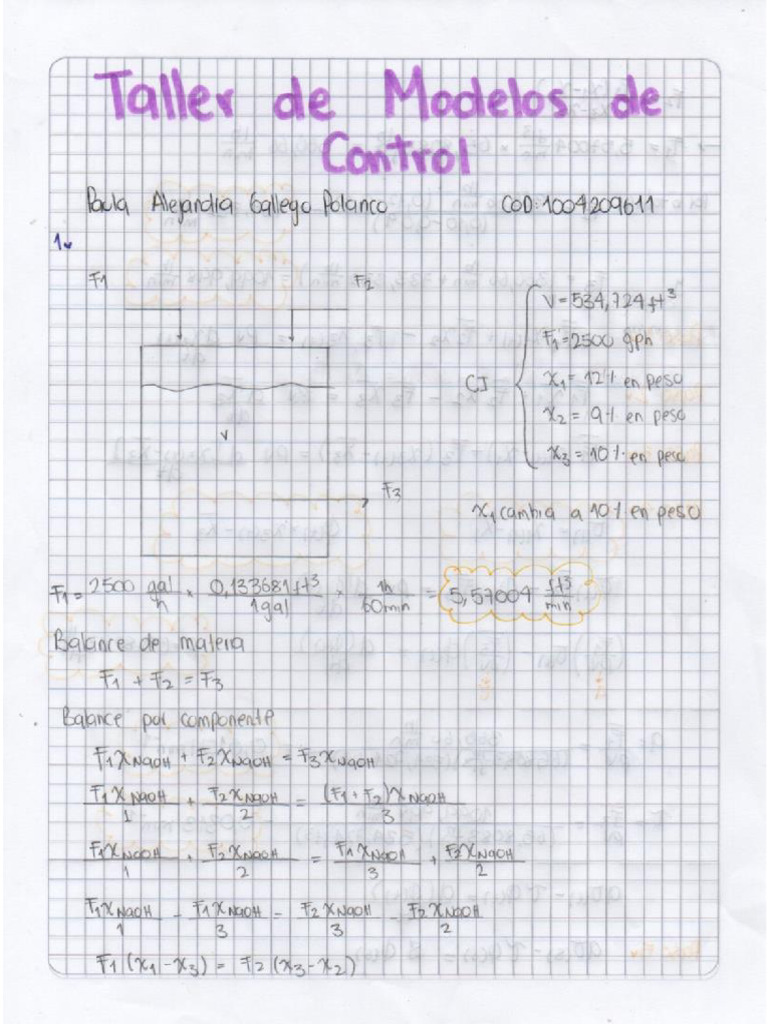 Taller de Modelos de
Control
Paula Alejandra Gallego Polanco COD:1004209611
1.
F1 F2
V = 534,724 ft³
F1 = 2500 gph
CI
x1 = 12% en peso
x2 = 9% en peso
x3 = 10% en peso
V
F3
x1 cambia a 10% en peso
F1 = 2500 gal/h × 0,133681 ft³/1gal × 1h/60min = 5,57004 ft³/min
Balance de materia
F1 + F2 = F3
Balance por componente
F1 XNaOH + F2 XNaOH = F3 XNaOH
F1 XNaOH/1 + F2 XNaOH/2 = (F1 + F2) XNaOH/3
F1 XNaOH/1 + F2 XNaOH/2 = F1 XNaOH/3 + F2 XNaOH/2
F1 XNaOH/1 - F1 XNaOH/3 = F2 XNaOH/3 - F2 XNaOH/2
F1 (x1 - x3) = F2 (x3 - x2)